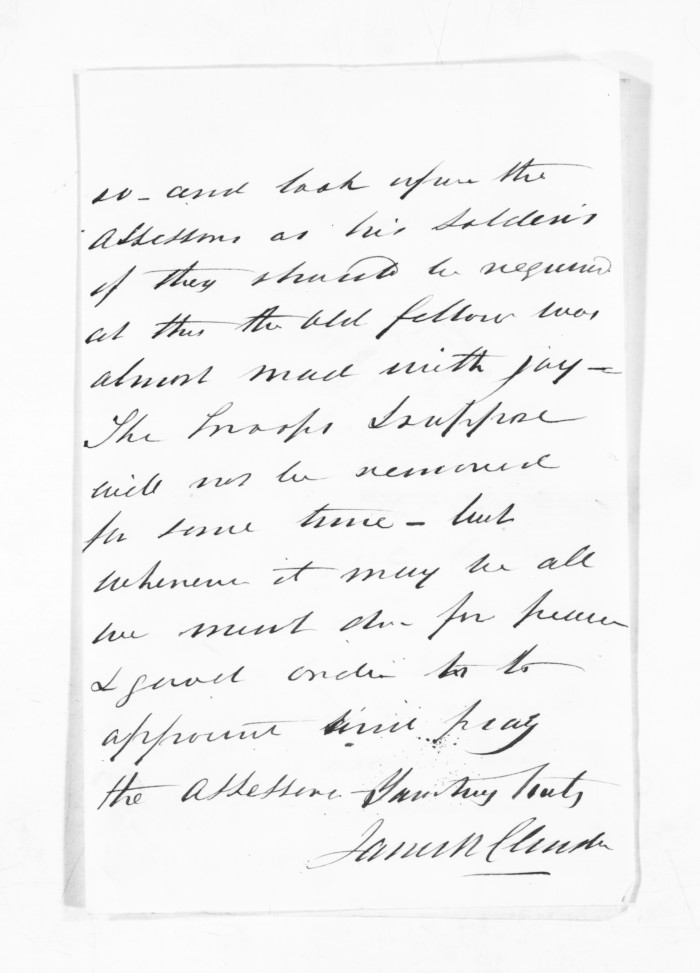 so - and look upon the
Assessors as his Soldiers
if they should be required
at this the Old fellow was
almost mad with joy -
The Troops I suppose
will not be removed
for some time - but
whenever it may be all
we must do for peace
& good order is to
appoint and pay
the Assessors - Yours very truly
James R Clendon